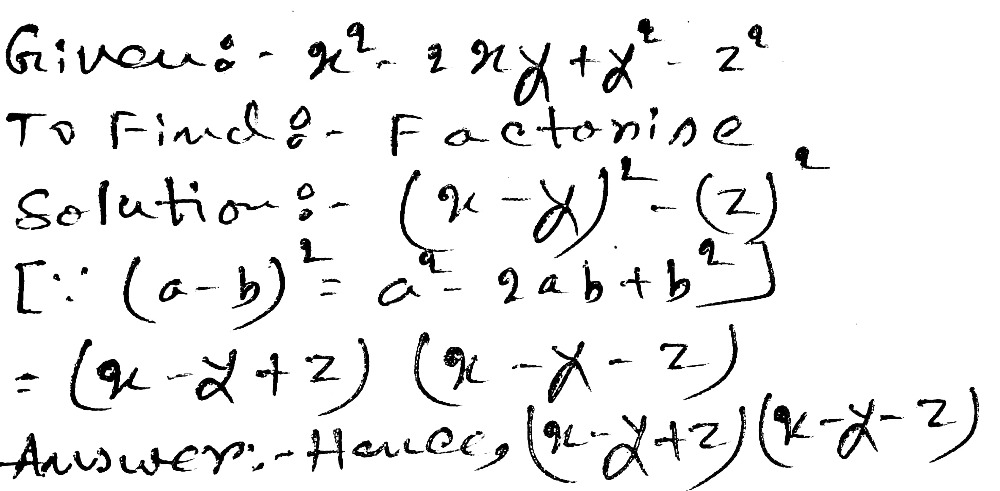 Given:- x² - 2xy + y² - z²
To Find:- Factorise
Solution:- (x - y)² - (z)²
[∵ (a-b)² = a² - 2ab + b²]
= (x - y + z) (x - y - z)
Answer:- Hence, (x - y + z) (x - y - z)